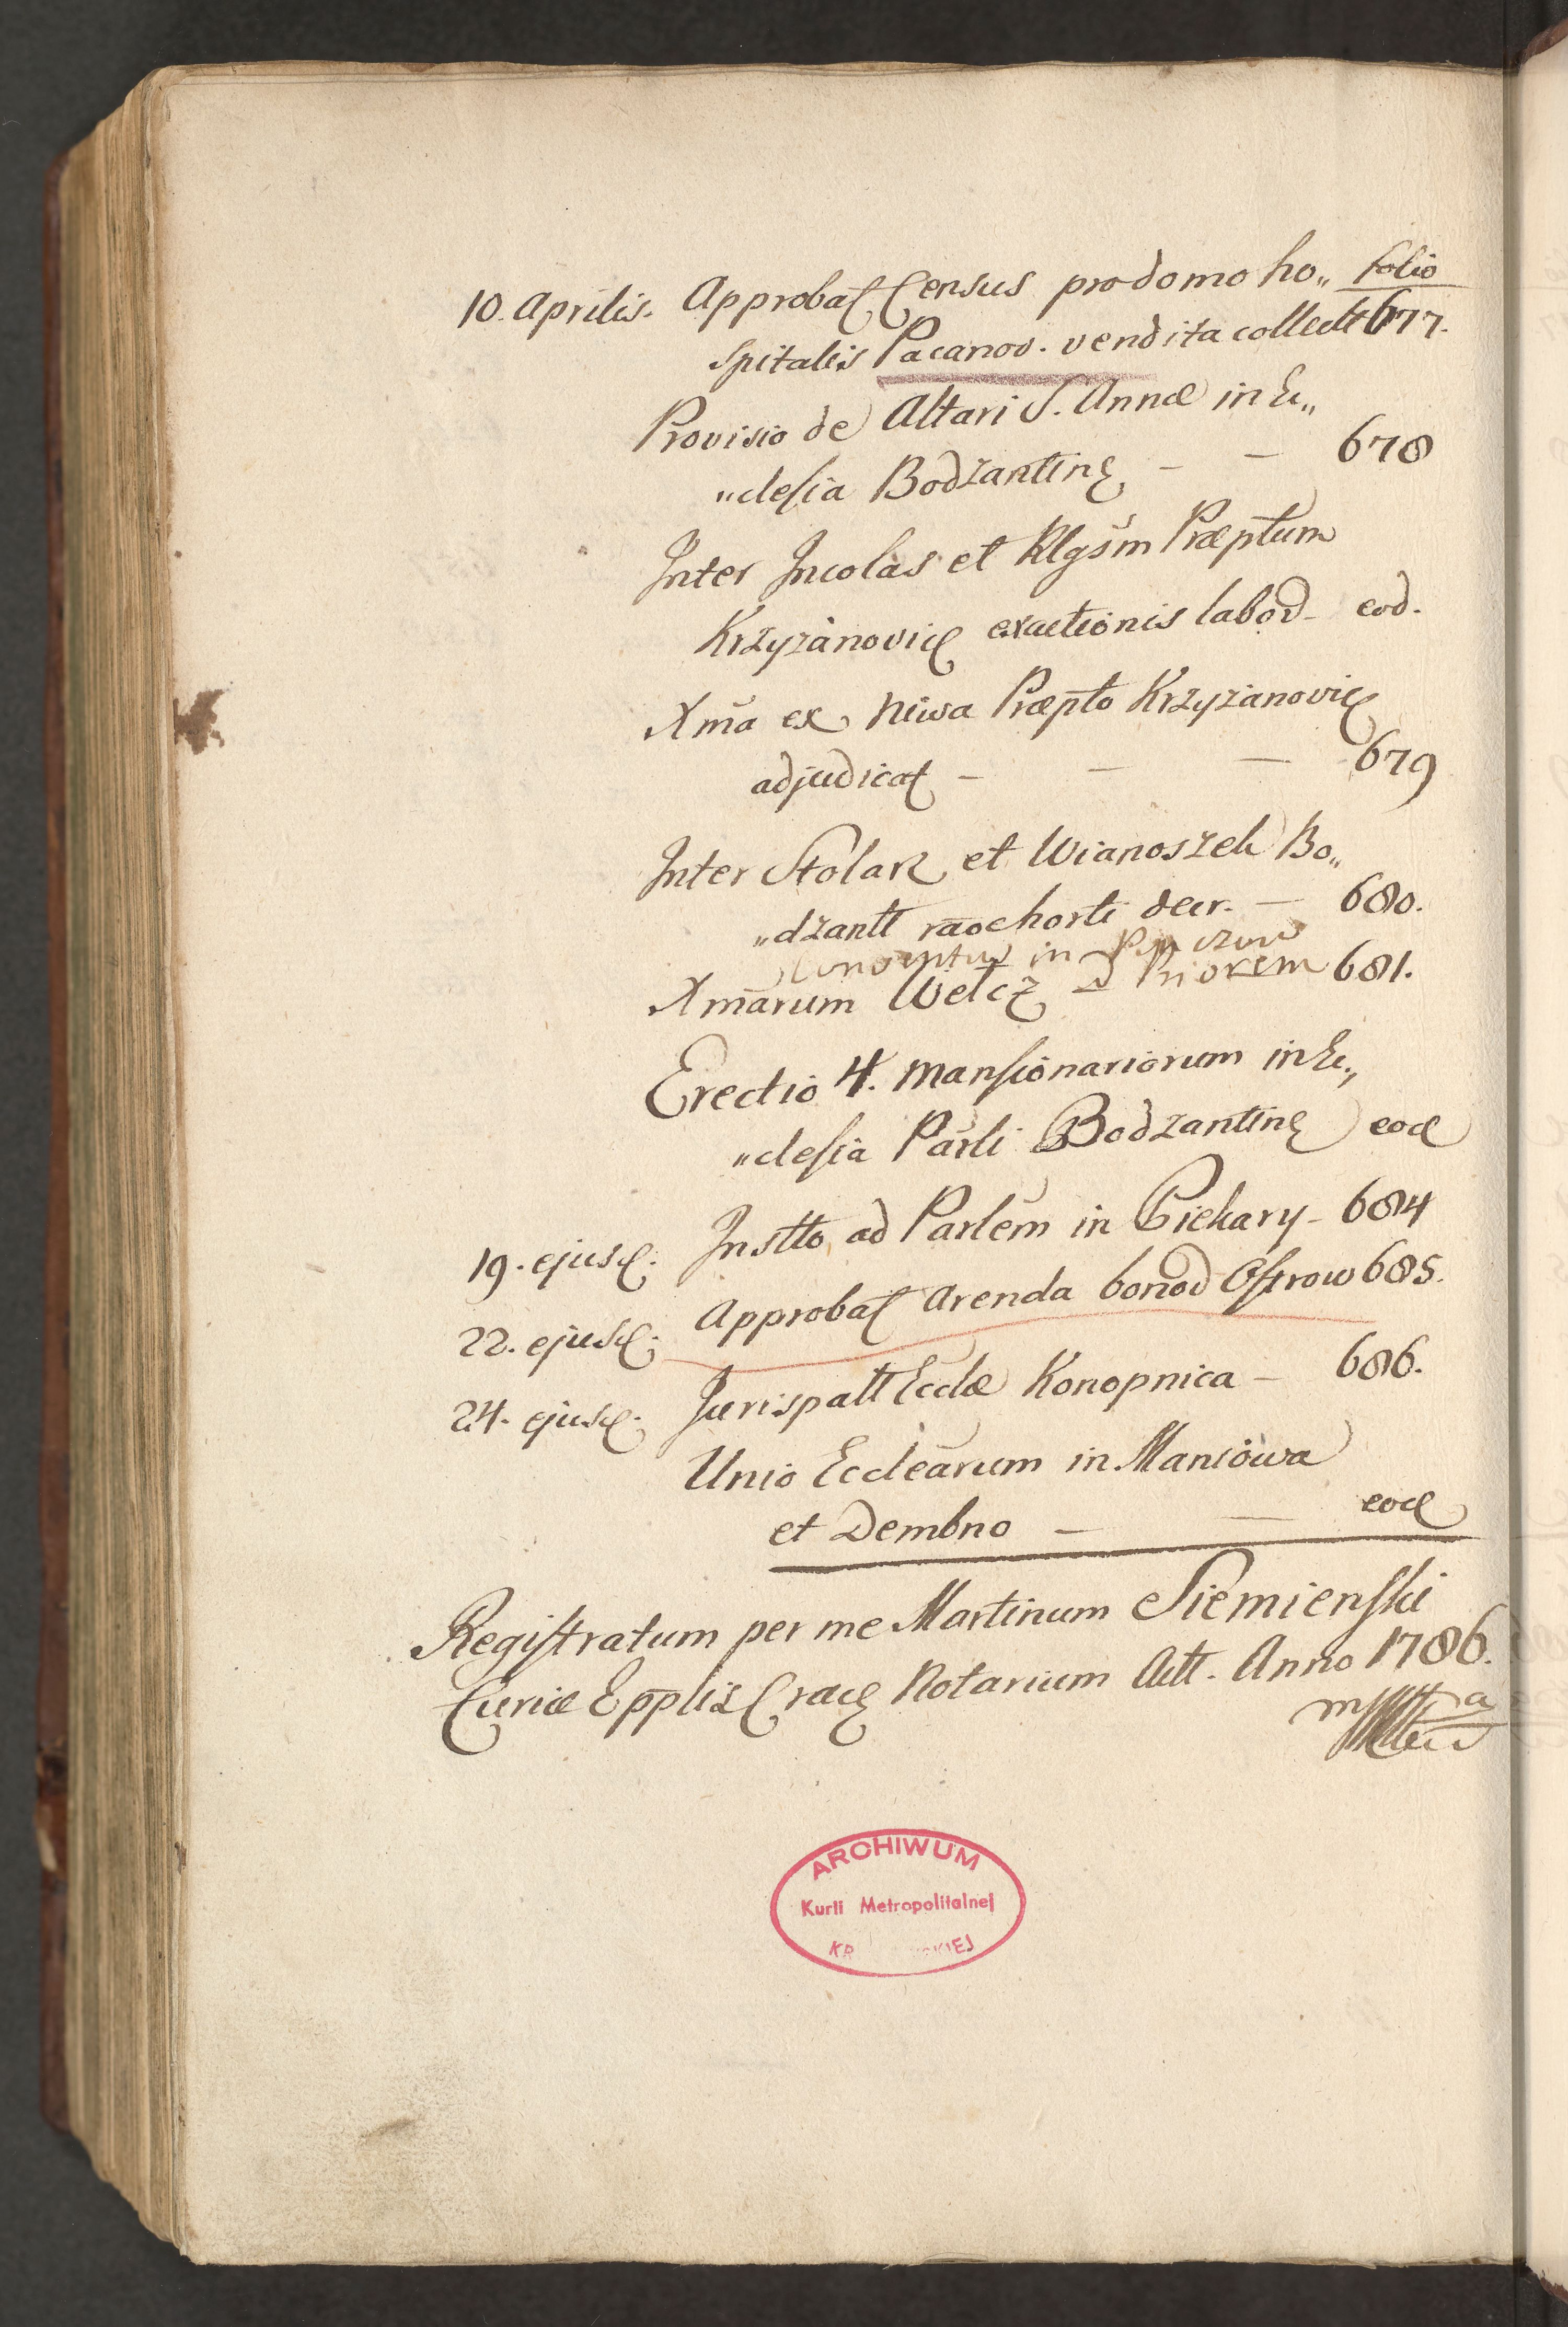 folio
10. Aprilis. Approbat Census pro domo ho„
spitalis Pacanov. vendita collect 677.
Provisio de Altari S. Annæ in Ec„
„clesia Bodzantine - - 678
Inter Incolas et Rlgsm Præptum
Krzyzanovic exactionis labor - eod.
Xma ex Niwa Præpto Krzyzanovic
adjudicat - - - 679
Inter Stolarz et Wianoszek Bo„
„dzantt raoe horti decr. - 680.
Conventus in Pinczow
Xmarum Welcz Priorem 681.
Erectio 4. Mansionariorum in Ec„
„clesia Parli Bodzantine eod
19. ejusd. Instto ad Parlem in Piekary - 684
22. ejusd. Approbat Arenda bonor Ostrow 685.
24. ejusd. Jurispatt Ecclæ Konopnica - 686.
Unio Ecclearum in Maniowa
et Dembno - - eod
Registratum per me Martinum Siemienski
Curiæ Epplis Crac Notarium Act. Anno 1786.
ARCHIWUM
Kurii Metropolitalnej
KR KIEJ